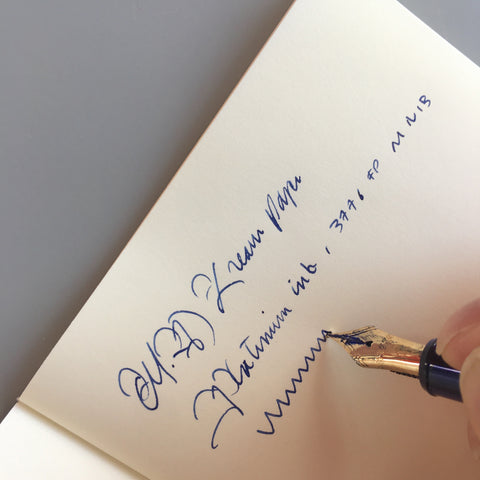 Kream Papu
Platinum ink, 3776 FP M NIB